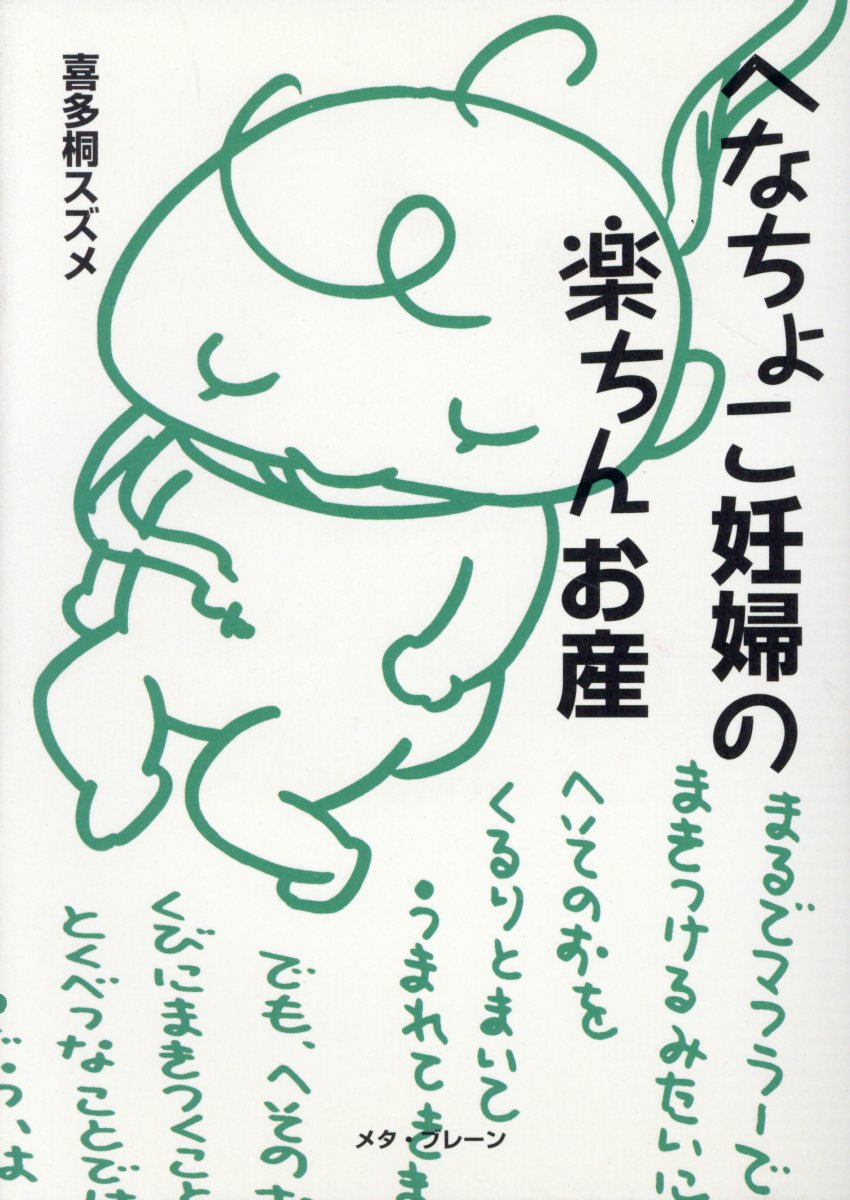 へなちょこ妊婦の
楽ちんお産
喜多桐スズメ
まるでマフラーで
まきつけるみたいに
へそのおを
くるりとまいて
うまれてきま
でも、へその
くびにまきつくこと
とくべつなことでは
メタ・ブレーン